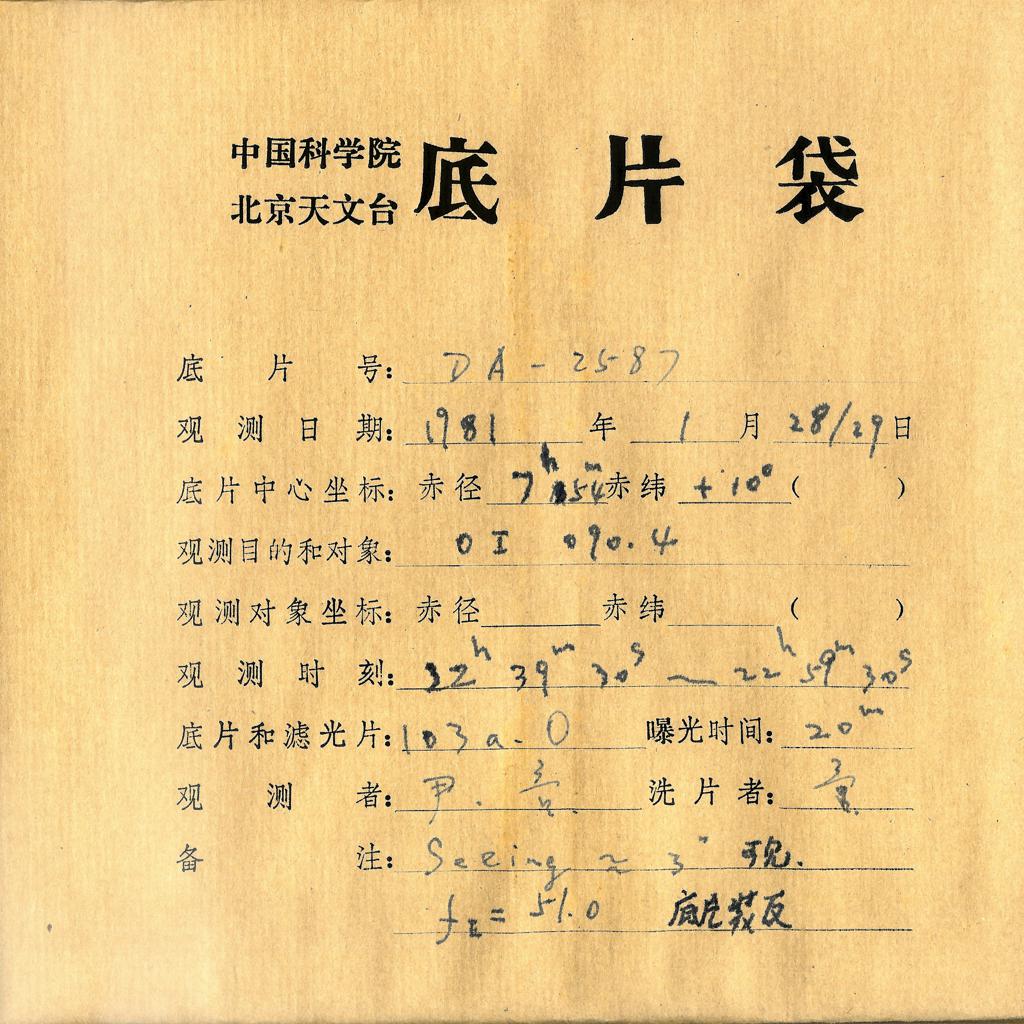 中国科学院
北京天文台
底片袋
底片号: DA-2587
观测日期: 1981年1月28/29日
底片中心坐标: 赤径 7h 54m 赤纬 +10° ( )
观测目的和对象: OI 090.4
观测对象坐标: 赤径 赤纬 ( )
观测时刻: 22h 39m 30s ~ 22h 59m 30s
底片和滤光片: 103a-O 曝光时间: 20m
观测者: 尹. 洗片者:
备注: Seeing ≈ 3" 可见.
fE = 51.0 底片装反